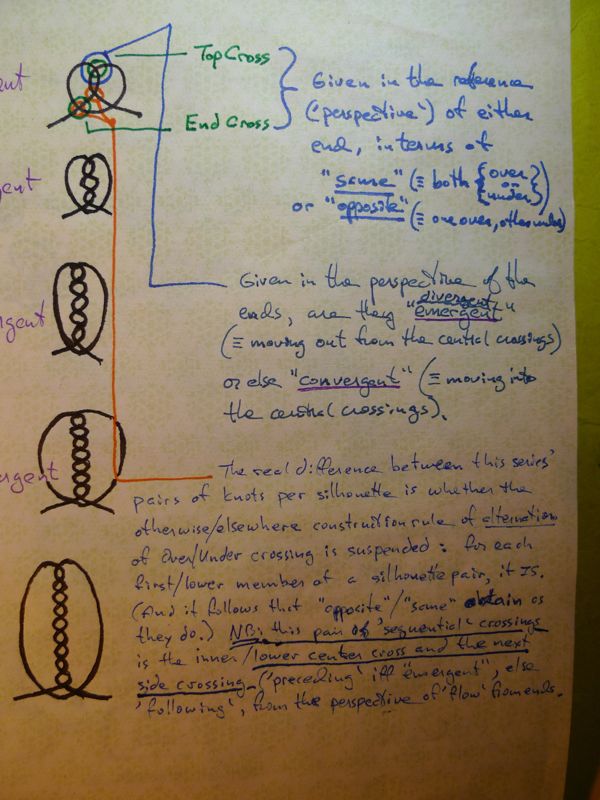 ent
Top Cross
End Cross
Given in the reference
('perspective') of either
end, in terms of
"same" (≡ both {over or under})
or "opposite" (≡ one over, other under)
gent
rgent
vergent
Given in the perspective of the
ends, are they "divergent
emergent"
(≡ moving out from the central crossings)
or else "convergent" (≡ moving into
the central crossings).
The real difference between this series'
pairs of knots per silhouette is whether the
otherwise/elsewhere construction rule of alternation
of Over/Under crossing is suspended: for each
first/lower member of a silhouette pair, it IS.
(And it follows that "opposite"/"same" obtain as
they do.) NB: this pair of 'sequential' crossings
is the inner/lower center cross and the next
side crossing – ('preceding' iff "emergent", else
'following', from the perspective of 'flow' from ends.